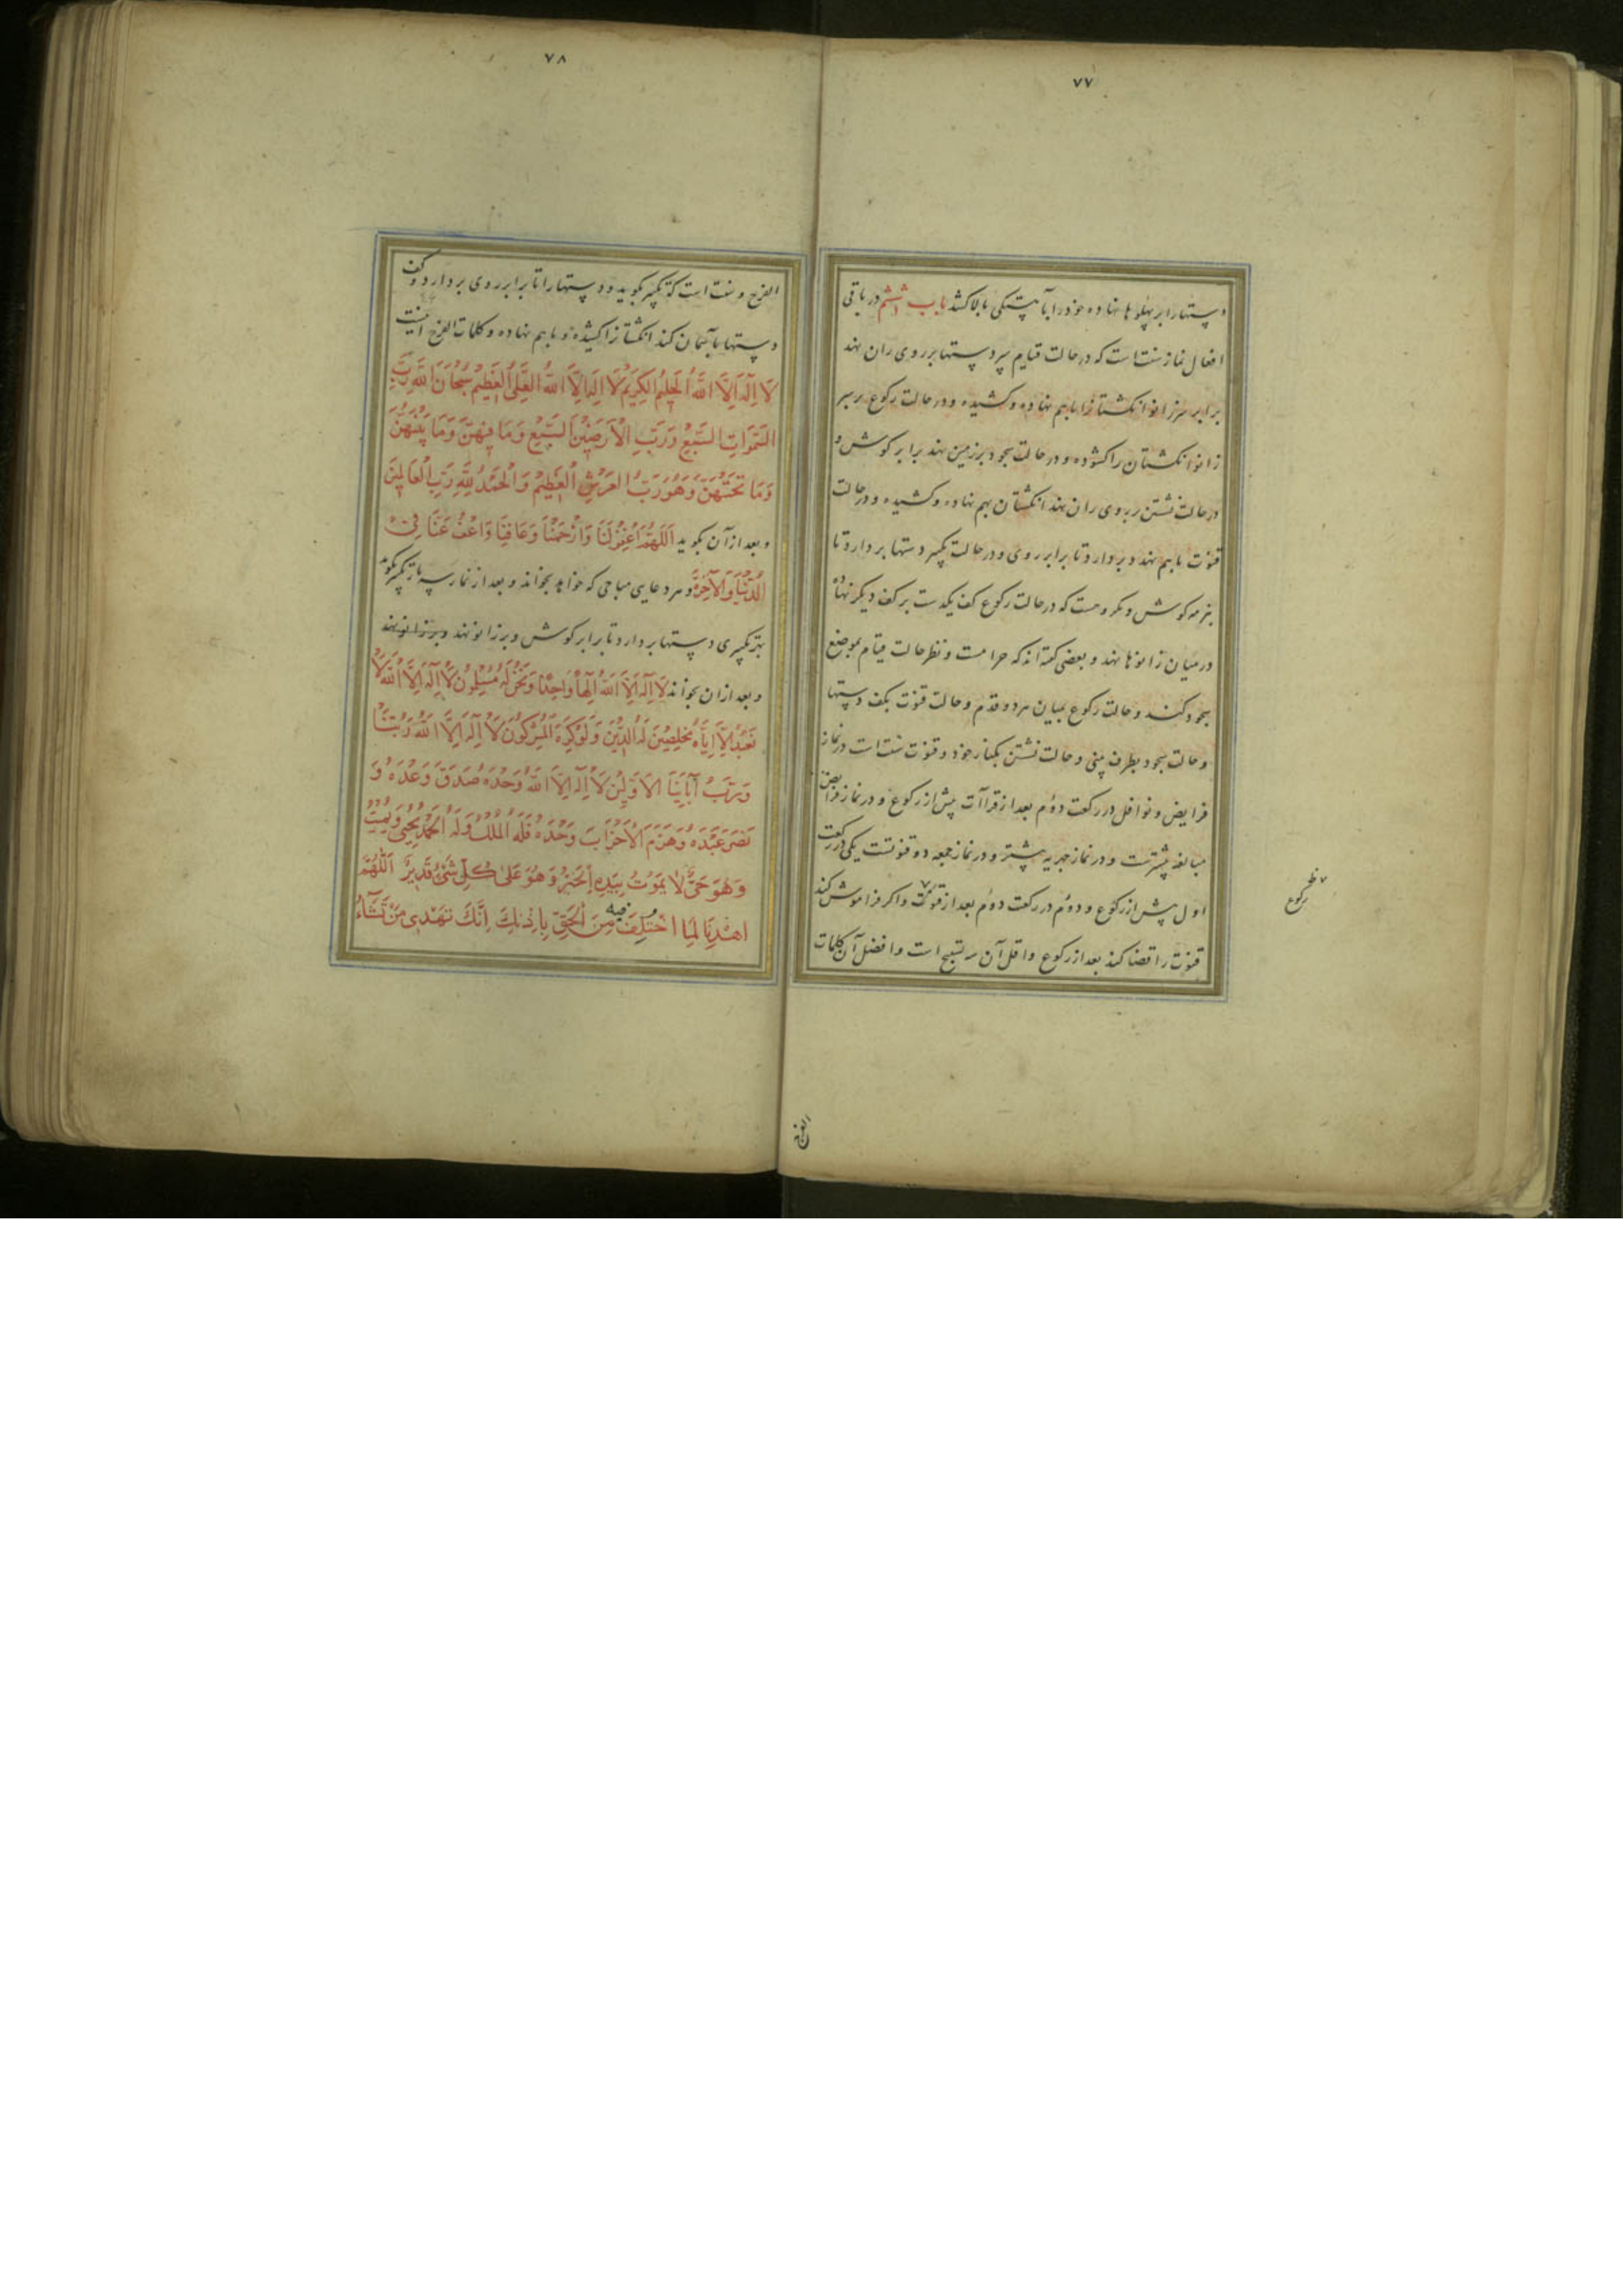 ۷۷
دستها را بر پهلوها نهاده خود را بآهستگی بالا کشد باب ششم در باقی
افعال نماز سنت است که در حالت قیام هر دو دستها بر روی ران نهد
برابر سر زانو انکشتانرا باهم نهاده و کشیده و در حالت رکوع بر سر
زانو انکشتان را کشوده و در حالت سجود بر زمین نهد برابر کوش و
در حالت نشتن بر روی ران نهد انکشتان بهم نهاده و کشیده و در حالت
قنوت باهم نهد و بردارد تا برابر روی و در حالت تکبیر دستها بردارد تا
بنرمه کوش و مکروهست که در حالت رکوع کف یکدست بر کف دیکر نهاده
در میان زانوها نهد و بعضی کفته‌اند که حرامست و نظر حالت قیام بموضع
سجود کند و حالت رکوع بمیان هر دو قدم و حالت قنوت بکف دستها
و حالت سجود بطرف بینی و حالت نشتن بکنار خود و قنوت سنت است در نماز
فرایض و نوافل در رکعت دوم بعد از قراآت پیش از رکوع و در نماز فرایض
مبالغه بیشترست و در نماز جهریه بیشتر و در نماز جمعه دو قنوتست یکی در رکعت
اول پیش از رکوع و دوم در رکعت دوم بعد از قنوت و اکر فراموش کند
قنوت را قضا کند بعد از رکوع و اقل آن سه تسبیح است و افضل آن کلمات
رکوع
الفرج
۷۸
الفرج و سنت است که تکبیر بکوید و دستها را تا برابر روی بردارد و کف
دستها بآسمان کند انکشتانرا کشیده و باهم نهاده و کلمات الفرج اینست
لَا اِلٰهَ اِلَّا اللّٰهُ الْحَلِیْمُ الْکَرِیْمُ لَا اِلٰهَ اِلَّا اللّٰهُ الْعَلِیُّ الْعَظِیْمُ سُبْحَانَ اللّٰهِ رَبِّ
السَّمٰوَاتِ السَّبْعِ وَرَبِّ الْاَرَضِیْنَ السَّبْعِ وَمَا فِیْهِنَّ وَمَا بَیْنَهُنَّ
وَمَا تَحْتَهُنَّ وَهُوَ رَبُّ الْعَرْشِ الْعَظِیْمِ وَالْحَمْدُ لِلّٰهِ رَبِّ الْعَالَمِیْنَ
و بعد از آن بکوید اَللّٰهُمَّ اغْفِرْ لَنَا وَارْحَمْنَا وَعَافِنَا وَاعْفُ عَنَّا فِی
الدُّنْیَا وَالْاٰخِرَةِ و هر دعایی مباحی که خواهد بخواند و بعد از نماز سه بار تکبیر بکوید
بهر تکبیری دستها بردارد تا برابر کوش و بر زانو نهد و بر زانو نهد
و بعد از ان بخواند لَا اِلٰهَ اِلَّا اللّٰهُ اِلٰهًا وَاحِدًا وَنَحْنُ لَهُ مُسْلِمُوْنَ لَا اِلٰهَ اِلَّا اللّٰهُ لَا
نَعْبُدُ اِلَّا اِیَّاهُ مُخْلِصِیْنَ لَهُ الدِّیْنَ وَلَوْ کَرِهَ الْمُشْرِکُوْنَ لَا اِلٰهَ اِلَّا اللّٰهُ رَبُّنَا
وَرَبُّ اٰبَائِنَا الْاَوَّلِیْنَ لَا اِلٰهَ اِلَّا اللّٰهُ وَحْدَهُ صَدَقَ وَعْدَهُ وَ
نَصَرَ عَبْدَهُ وَهَزَمَ الْاَحْزَابَ وَحْدَهُ فَلَهُ الْمُلْکُ وَلَهُ الْحَمْدُ یُحْیِی وَیُمِیْتُ
وَهُوَ حَیٌّ لَا یَمُوْتُ بِیَدِهِ الْخَیْرُ وَهُوَ عَلٰی کُلِّ شَیْءٍ قَدِیْرٌ اَللّٰهُمَّ
اهْدِنَا لِمَا اخْتُلِفَ فِیْهِ مِنَ الْحَقِّ بِاِذْنِکَ اِنَّکَ تَهْدِی مَنْ تَشَاءُ